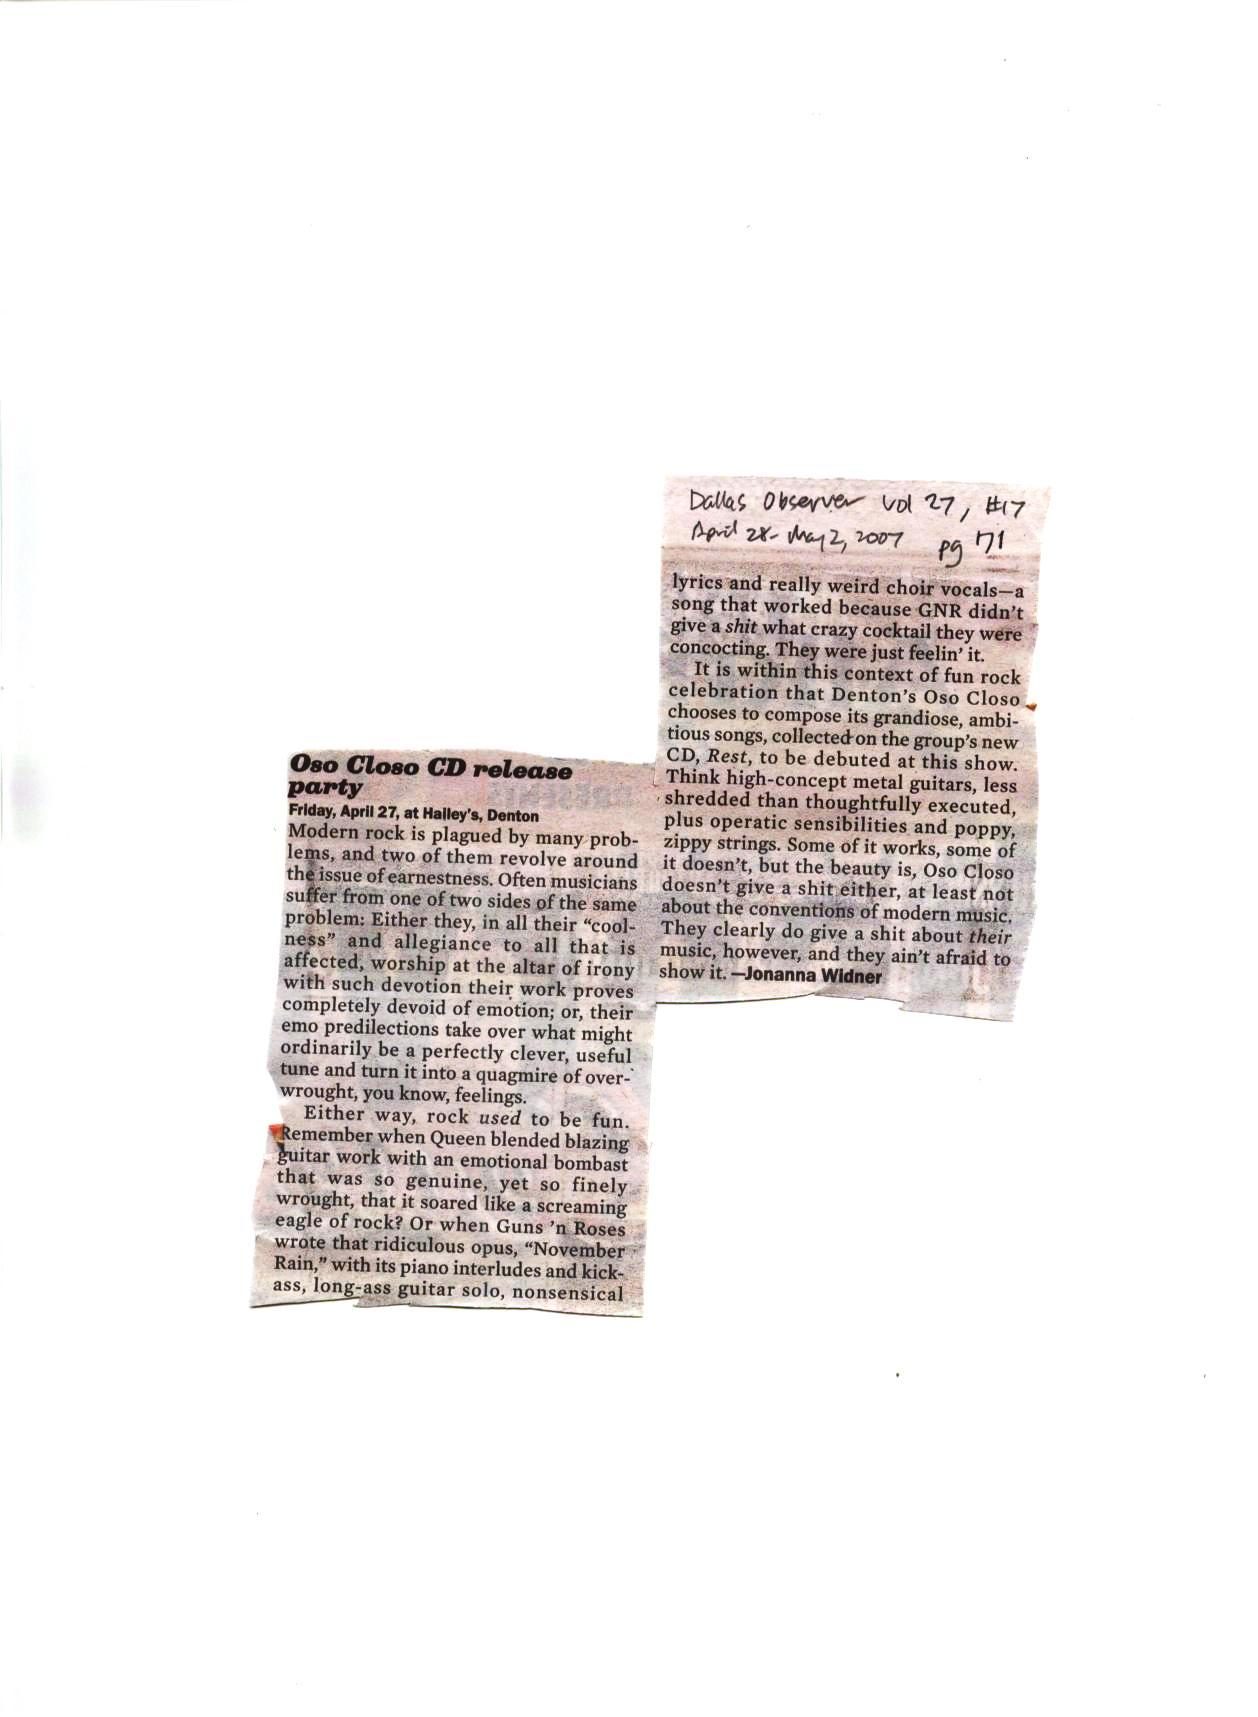 Dallas Observer Vol 27, #17
April 28- May 2, 2007 pg 71
Oso Closo CD release
party
Friday, April 27, at Hailey's, Denton
Modern rock is plagued by many prob-
lems, and two of them revolve around
the issue of earnestness. Often musicians
suffer from one of two sides of the same
problem: Either they, in all their “cool-
ness” and allegiance to all that is
affected, worship at the altar of irony
with such devotion their work proves
completely devoid of emotion; or, their
emo predilections take over what might
ordinarily be a perfectly clever, useful
tune and turn it into a quagmire of over-
wrought, you know, feelings.
Either way, rock used to be fun.
Remember when Queen blended blazing
guitar work with an emotional bombast
that was so genuine, yet so finely
wrought, that it soared like a screaming
eagle of rock? Or when Guns ’n Roses
wrote that ridiculous opus, “November
Rain,” with its piano interludes and kick-
ass, long-ass guitar solo, nonsensical
lyrics and really weird choir vocals—a
song that worked because GNR didn’t
give a shit what crazy cocktail they were
concocting. They were just feelin’ it.
It is within this context of fun rock
celebration that Denton’s Oso Closo
chooses to compose its grandiose, ambi-
tious songs, collected on the group’s new
CD, Rest, to be debuted at this show.
Think high-concept metal guitars, less
shredded than thoughtfully executed,
plus operatic sensibilities and poppy,
zippy strings. Some of it works, some of
it doesn’t, but the beauty is, Oso Closo
doesn’t give a shit either, at least not
about the conventions of modern music.
They clearly do give a shit about their
music, however, and they ain’t afraid to
show it. —Jonanna Widner